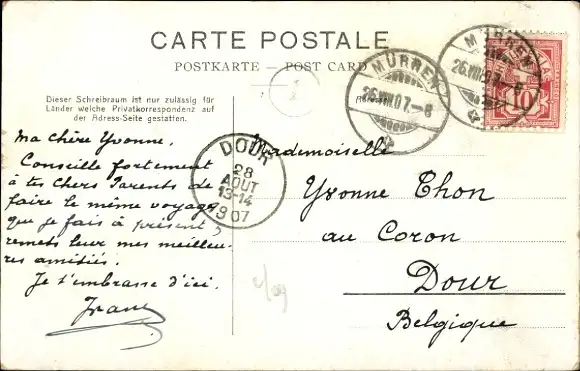 CARTE POSTALE
POSTKARTE — POST CARD
Dieser Schreibraum ist nur zulässig für
Länder welche Privatkorrespondenz auf
der Adress-Seite gestatten.
Ma chère Yvonne,
Conseille fortement
à tes chers Parents de
faire le même voyage
que je fais à présent &
remets leur mes meilleu-
res amitiés.
Je t'embrasse d'ici.
MÜRREN
26.VIII.07.-8
MÜRREN
26.VIII.07.-8
10
1
Adresse
DOUR
28
AOUT
13-14
1907
Mademoiselle
Yvonne Thon
au Coron
Dour
Belgique